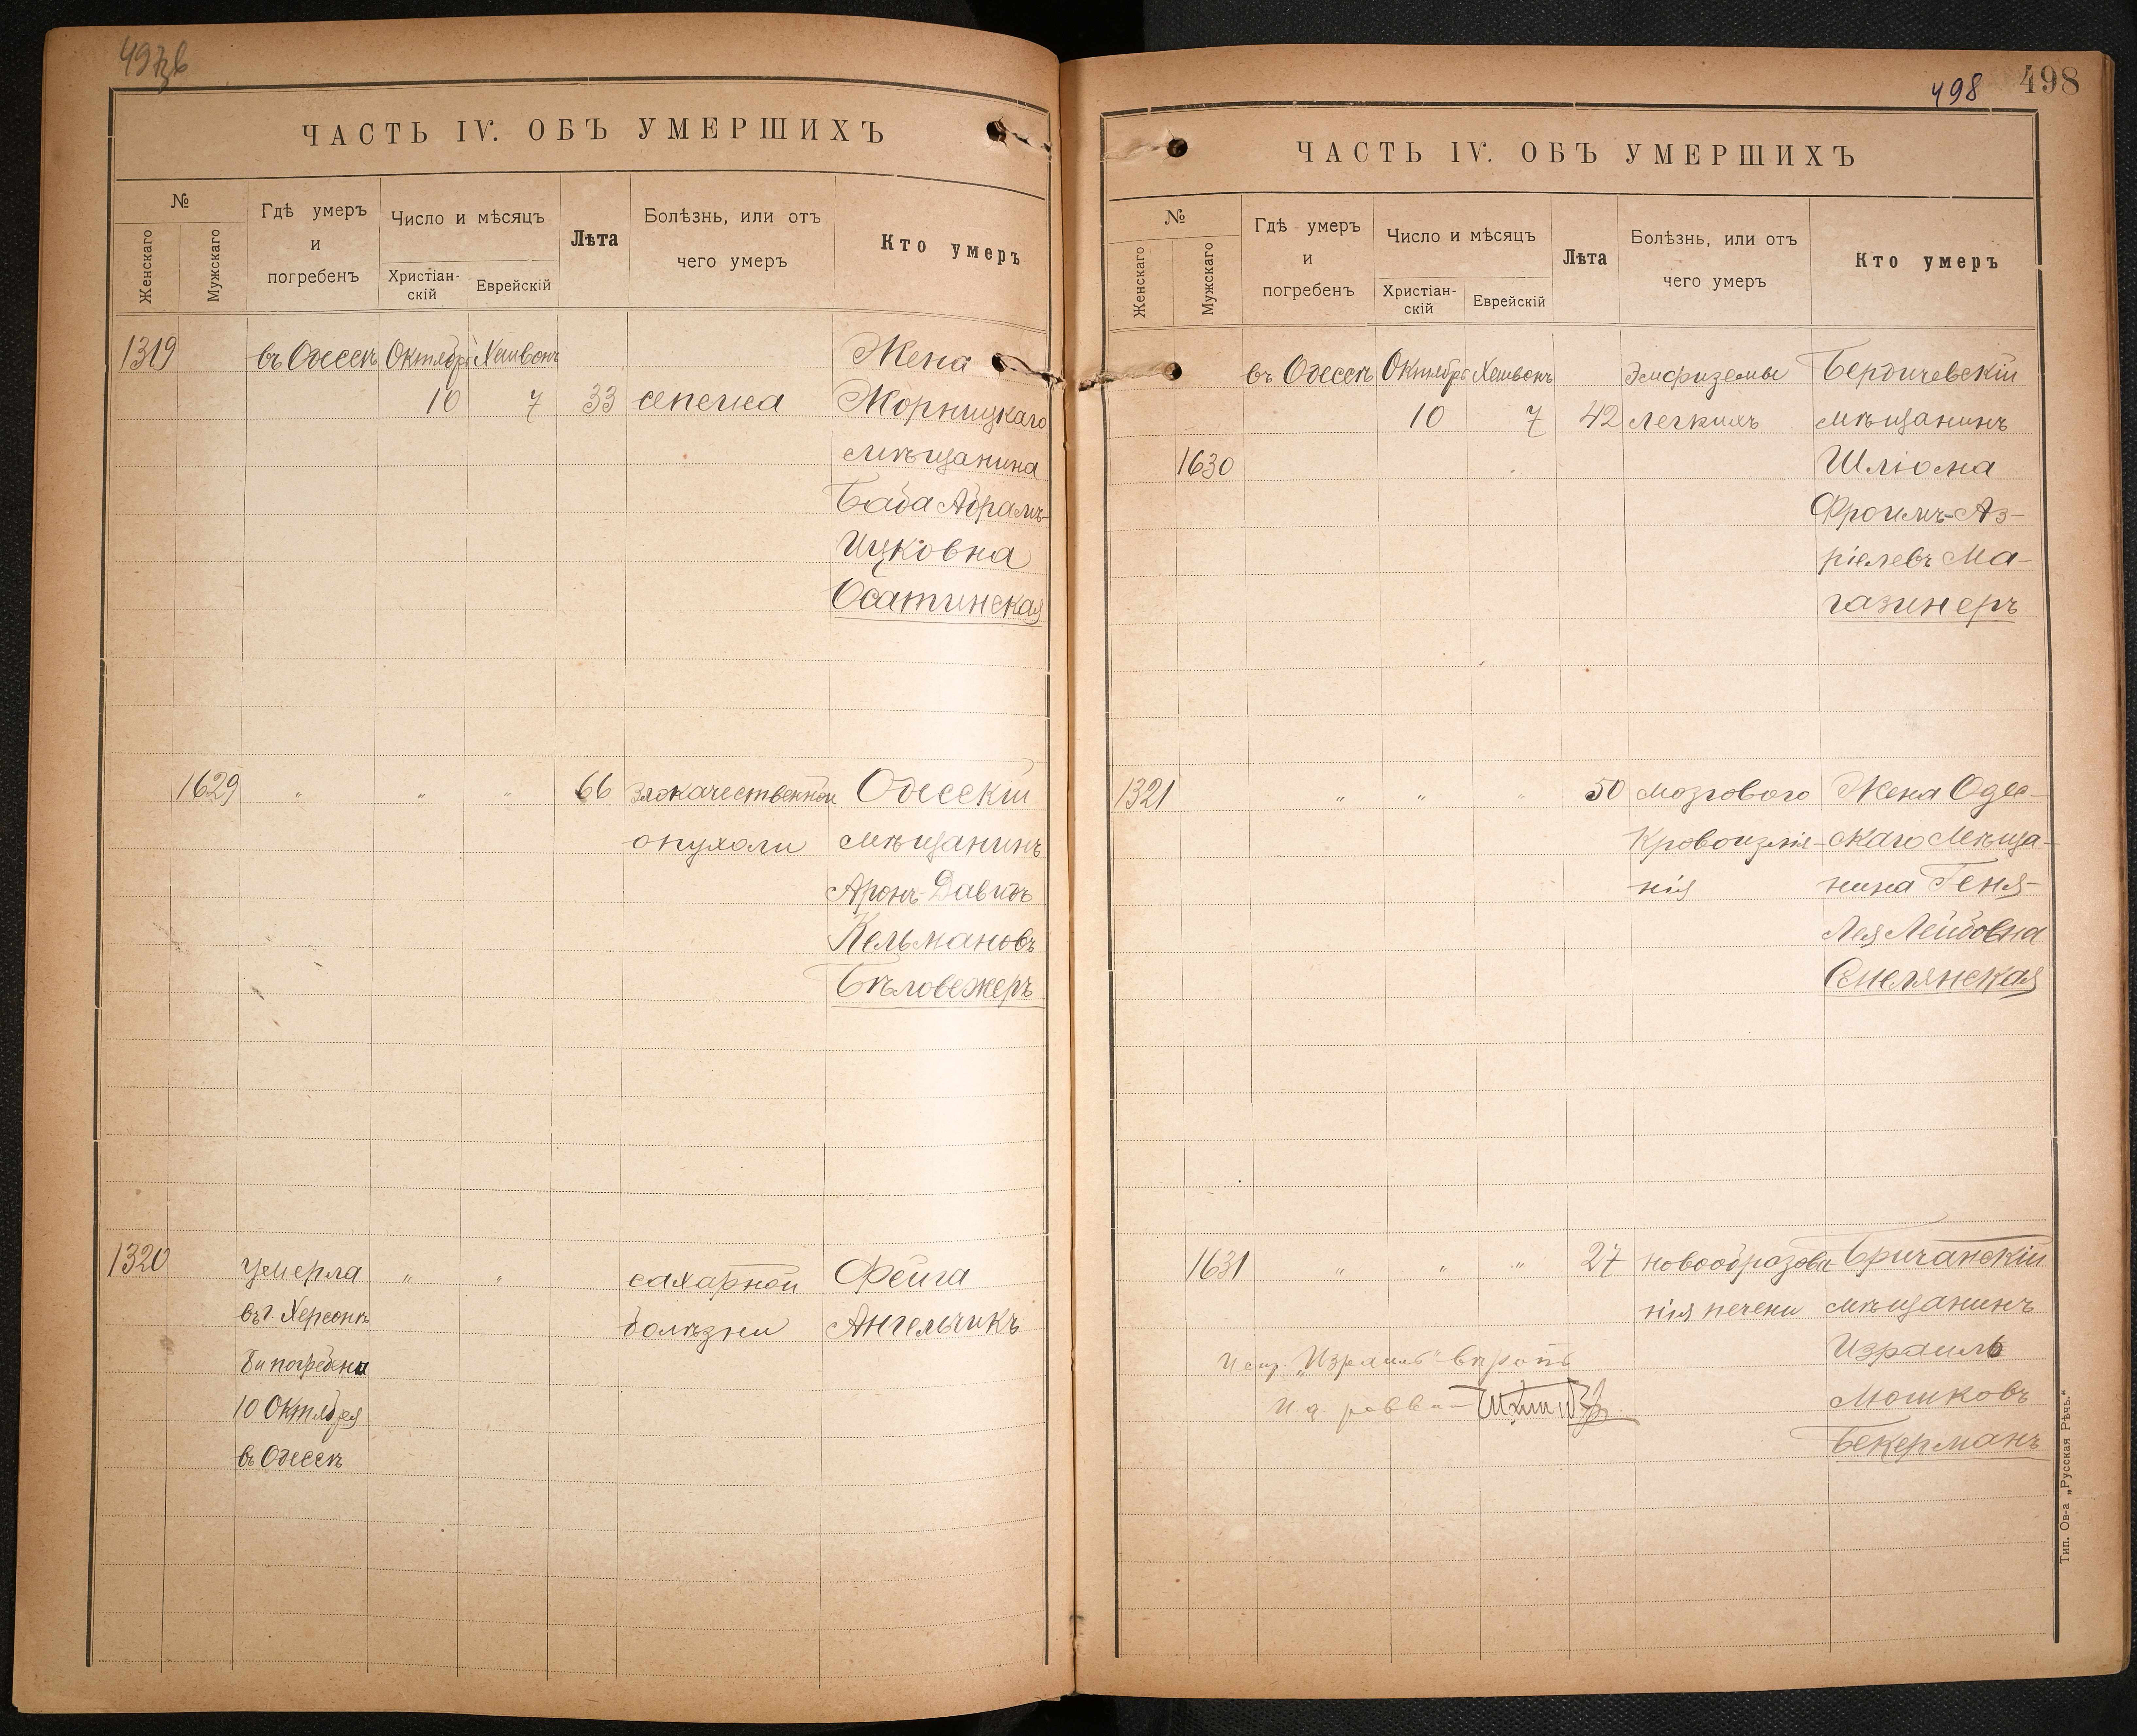 497 зв
ЧАСТЬ IV. ОБЪ УМЕРШИХЪ
№
Женскаго
Мужскаго
Гдѣ умеръ
и
погребенъ
Число и мѣсяцъ
Христіан-
скій
Еврейскій
Лѣта
Болѣзнь, или отъ
чего умеръ
Кто умеръ
1319 въ Одессѣ Октября Хешвонъ Жена
10 7 33 сепсиса Жорнищкаго
мѣщанина
Баба Абрамъ-
Ицковна
Осатинская
1629 " " " 66 злокачественной Одесскій
опухоли мѣщанинъ
Аронъ-Давидъ
Кельмановъ
Бѣловежеръ
1320 умерла " " сахарной Фейга
въ г. Херсонѣ болѣзни Ангельчикъ
8 и погребена
10 Октября
въ Одессѣ
498 498
ЧАСТЬ IV. ОБЪ УМЕРШИХЪ
№
Женскаго
Мужскаго
Гдѣ умеръ
и
погребенъ
Число и мѣсяцъ
Христіан-
скій
Еврейскій
Лѣта
Болѣзнь, или отъ
чего умеръ
Кто умеръ
въ Одессѣ Октября Хешвонъ Эмфиземы Бердичевскій
10 7 42 легкихъ мѣщанинъ
1630 Шліома
Фроимъ-Аз-
ріелевъ Ма-
газинеръ
1321 " " " 50 мозгового Жена Одес-
кровоизлія- скаго мѣща-
нія нина Геня-
Лея Лейбовна
Смелянская
1631 " " " 27 новообразова Бричанскій
нія печени мѣщанинъ
Израиль
Испр. „Израиль" вѣрить
Мошковъ
И. д. раввина
Бекерманъ
Тип. Ов-а „Русская Рѣчь."